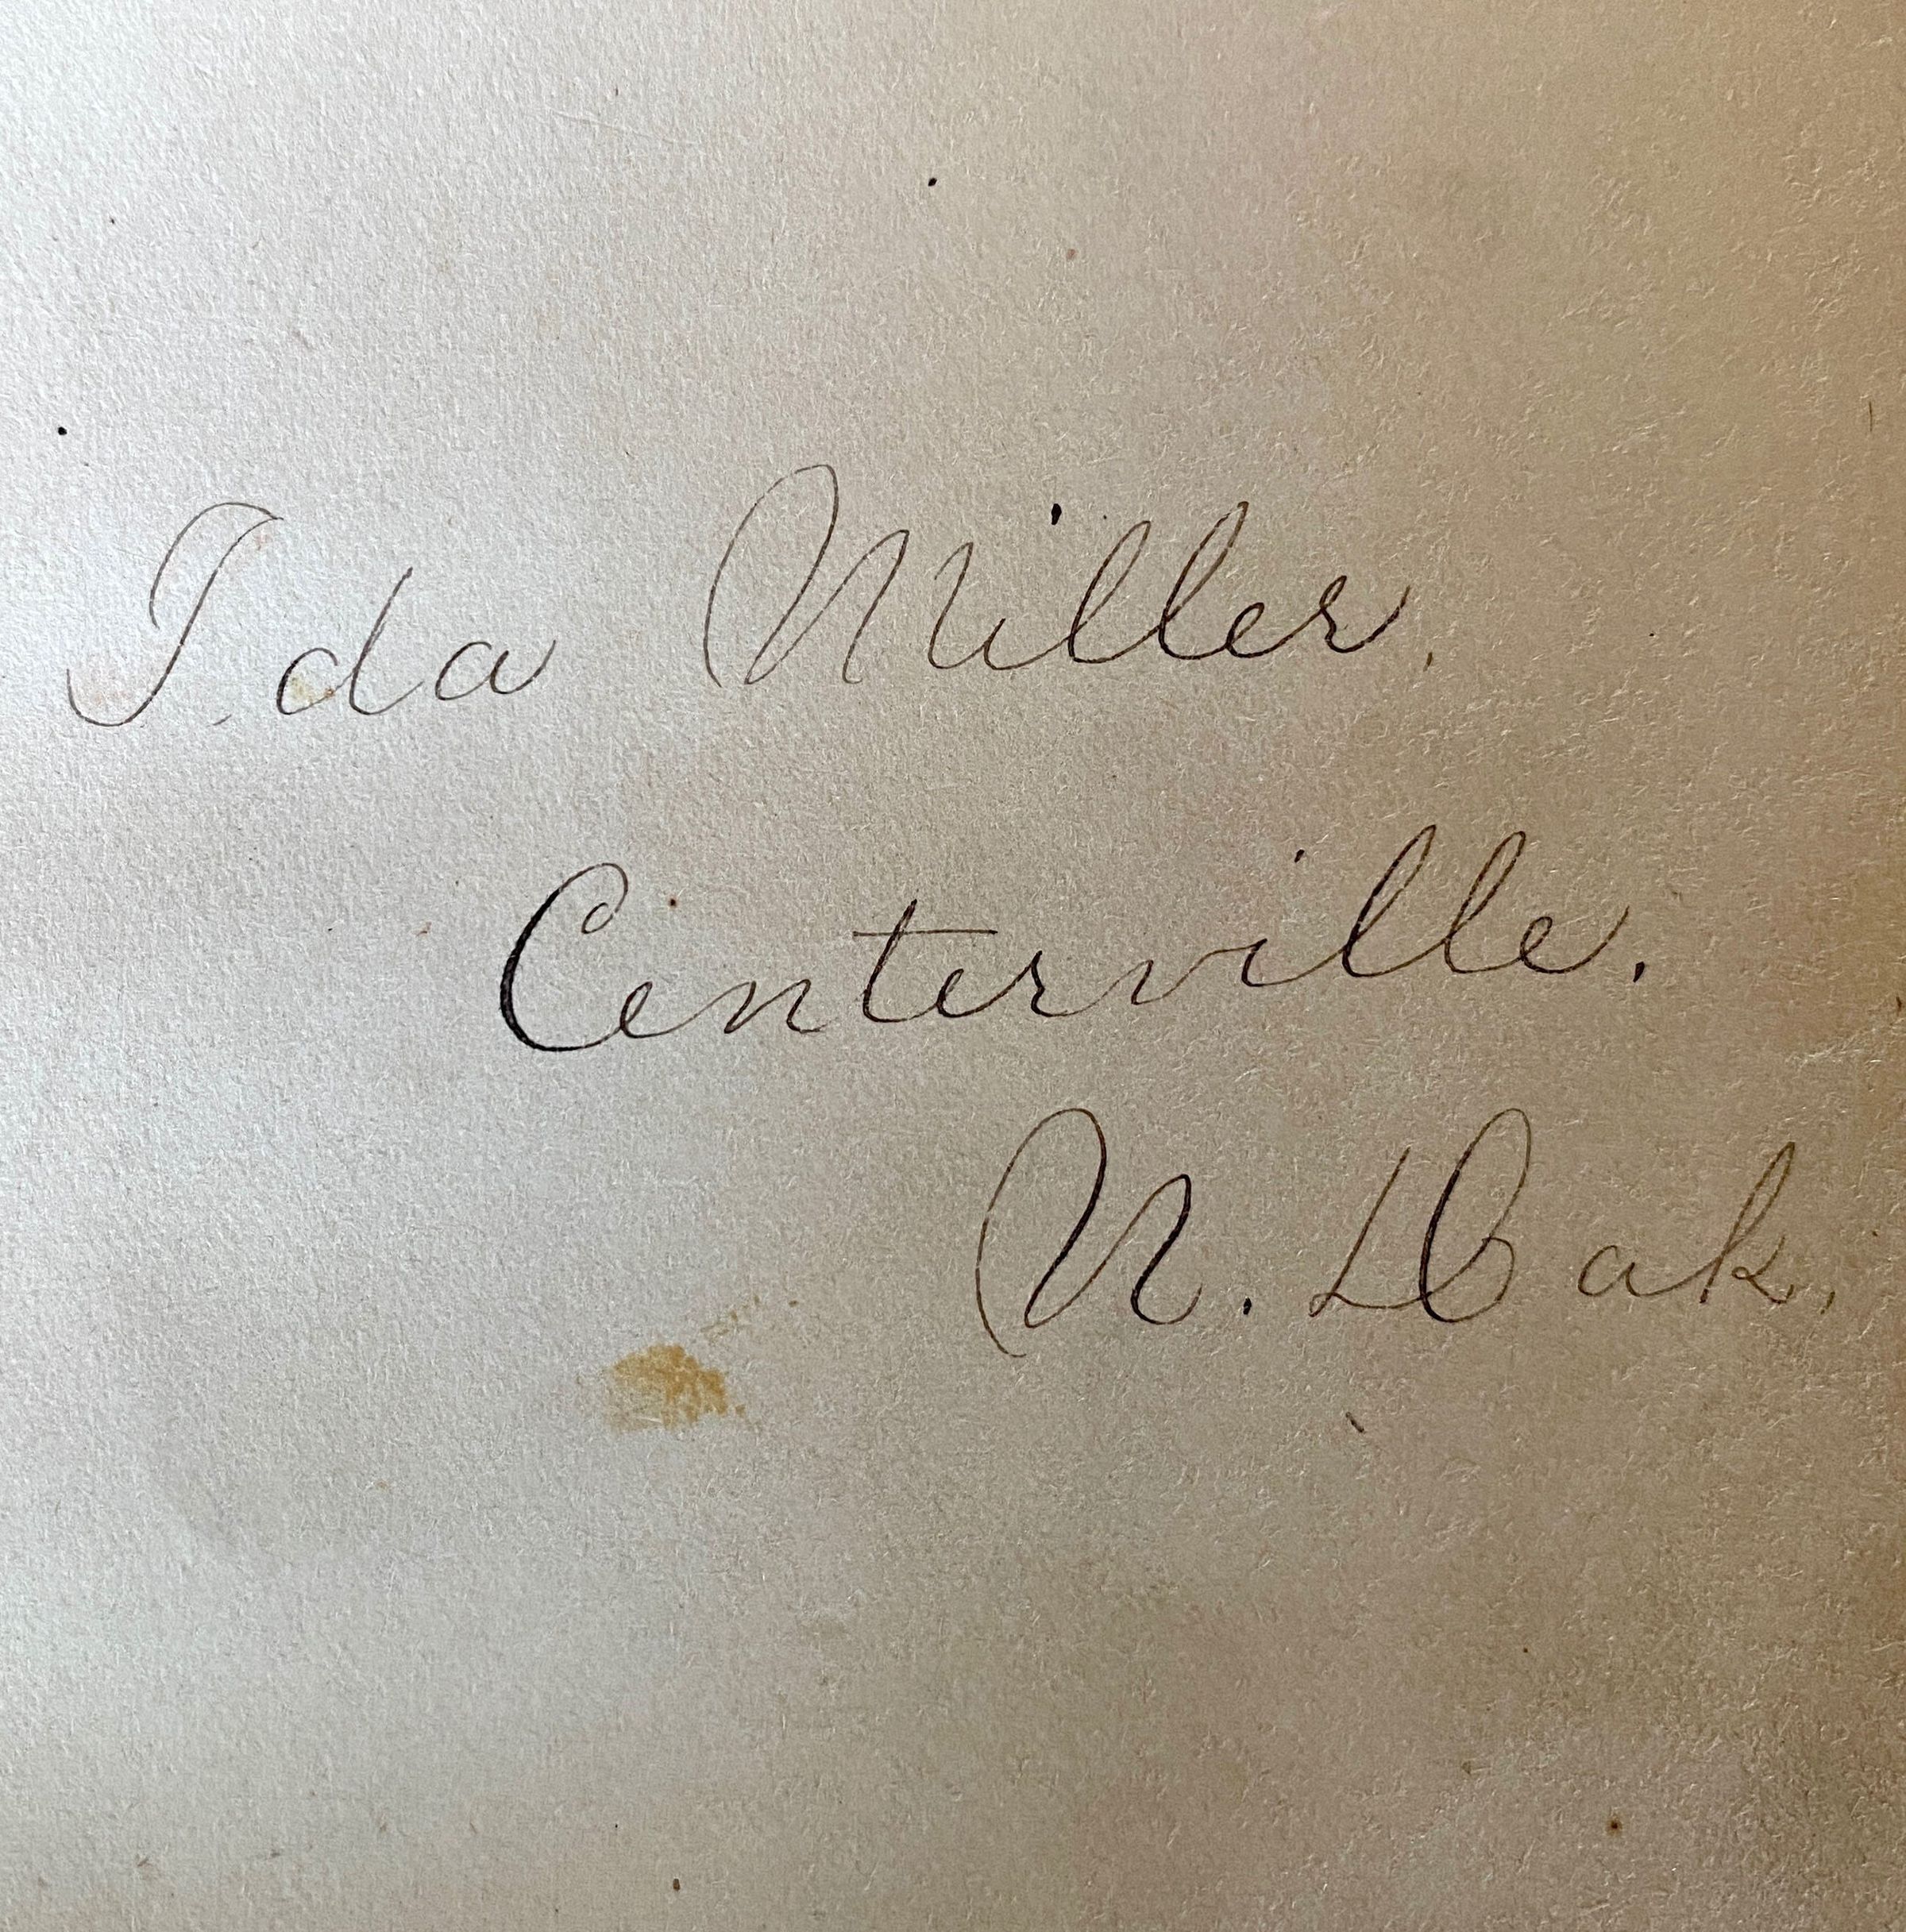 Ida Miller.
Centerville.
N. Dak.